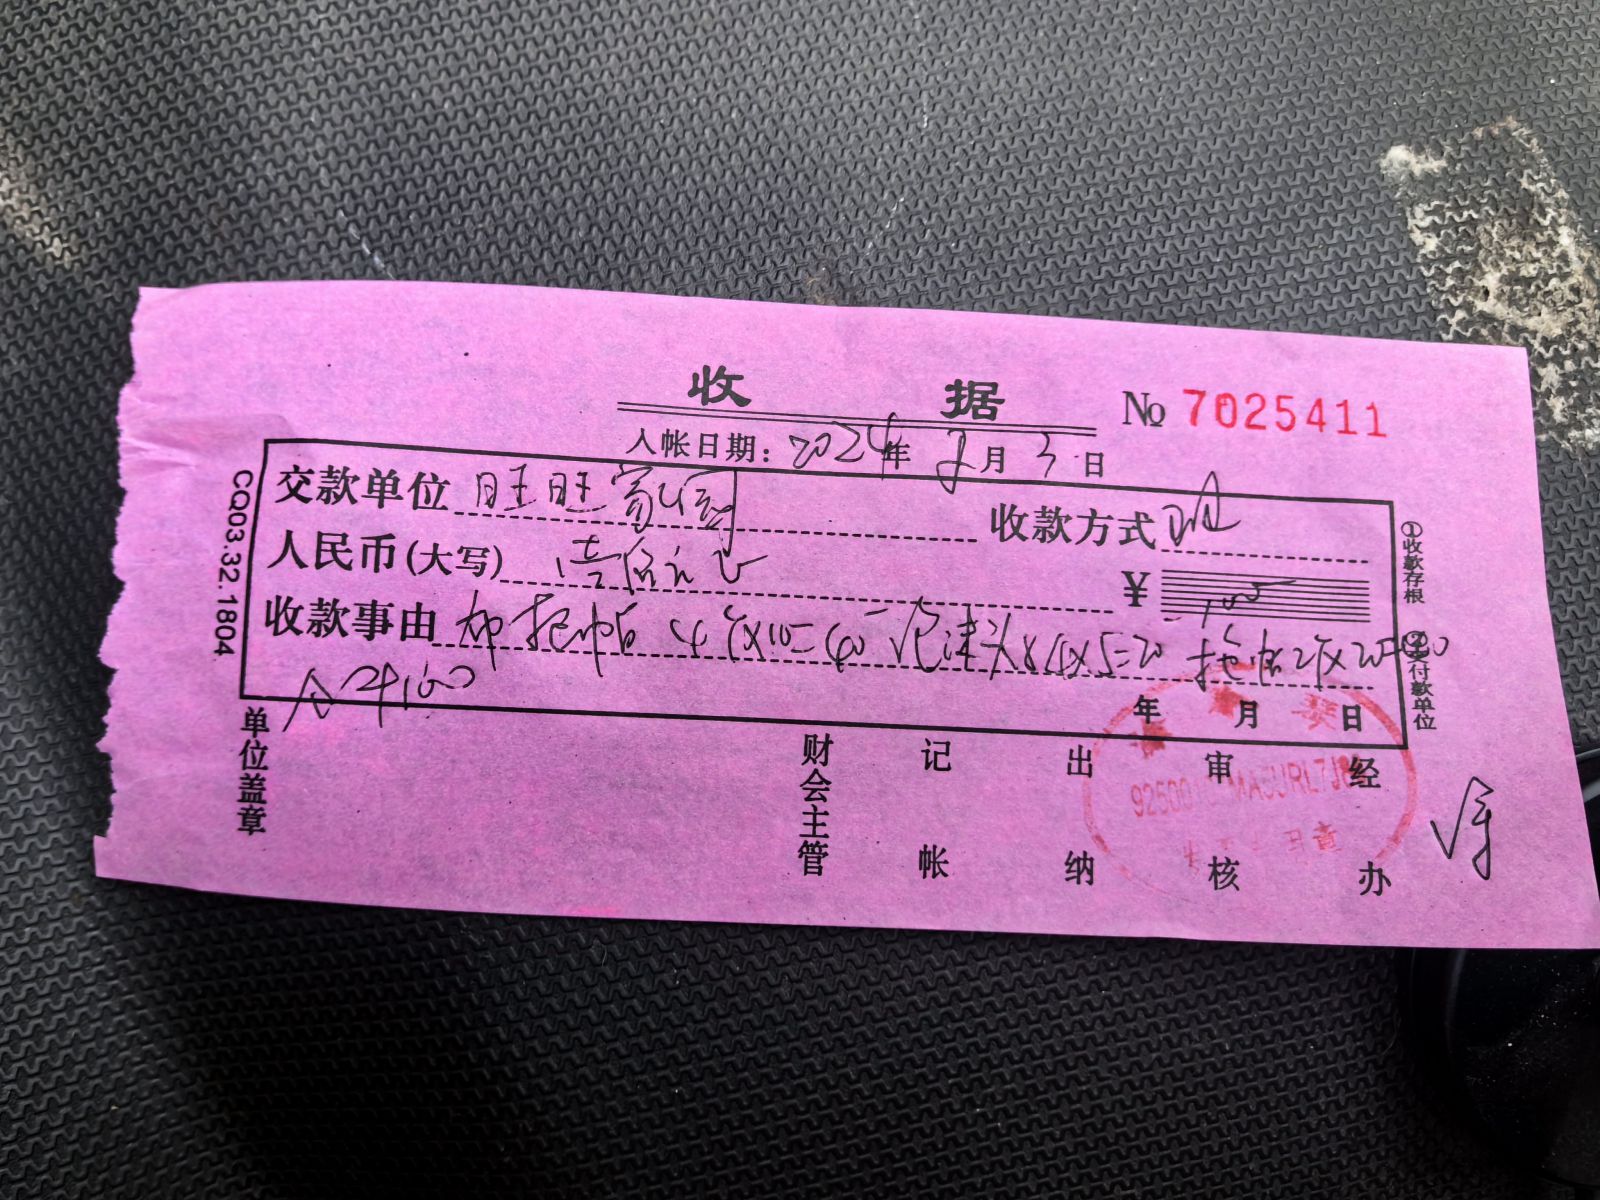 收 据
№ 7025411
入帐日期：2024年 2月 3日
交款单位 旺旺家园
收款方式 现
人民币(大写) 壹佰元
¥ 100
收款事由 布拖帕 4个×10=40 4×5=20 拖帕2个×20=40
合计100
年 月 日
单位盖章
财会主管
记帐
出纳
审核
经办
CQ03.32.1804
①收款存根
②交付款单位